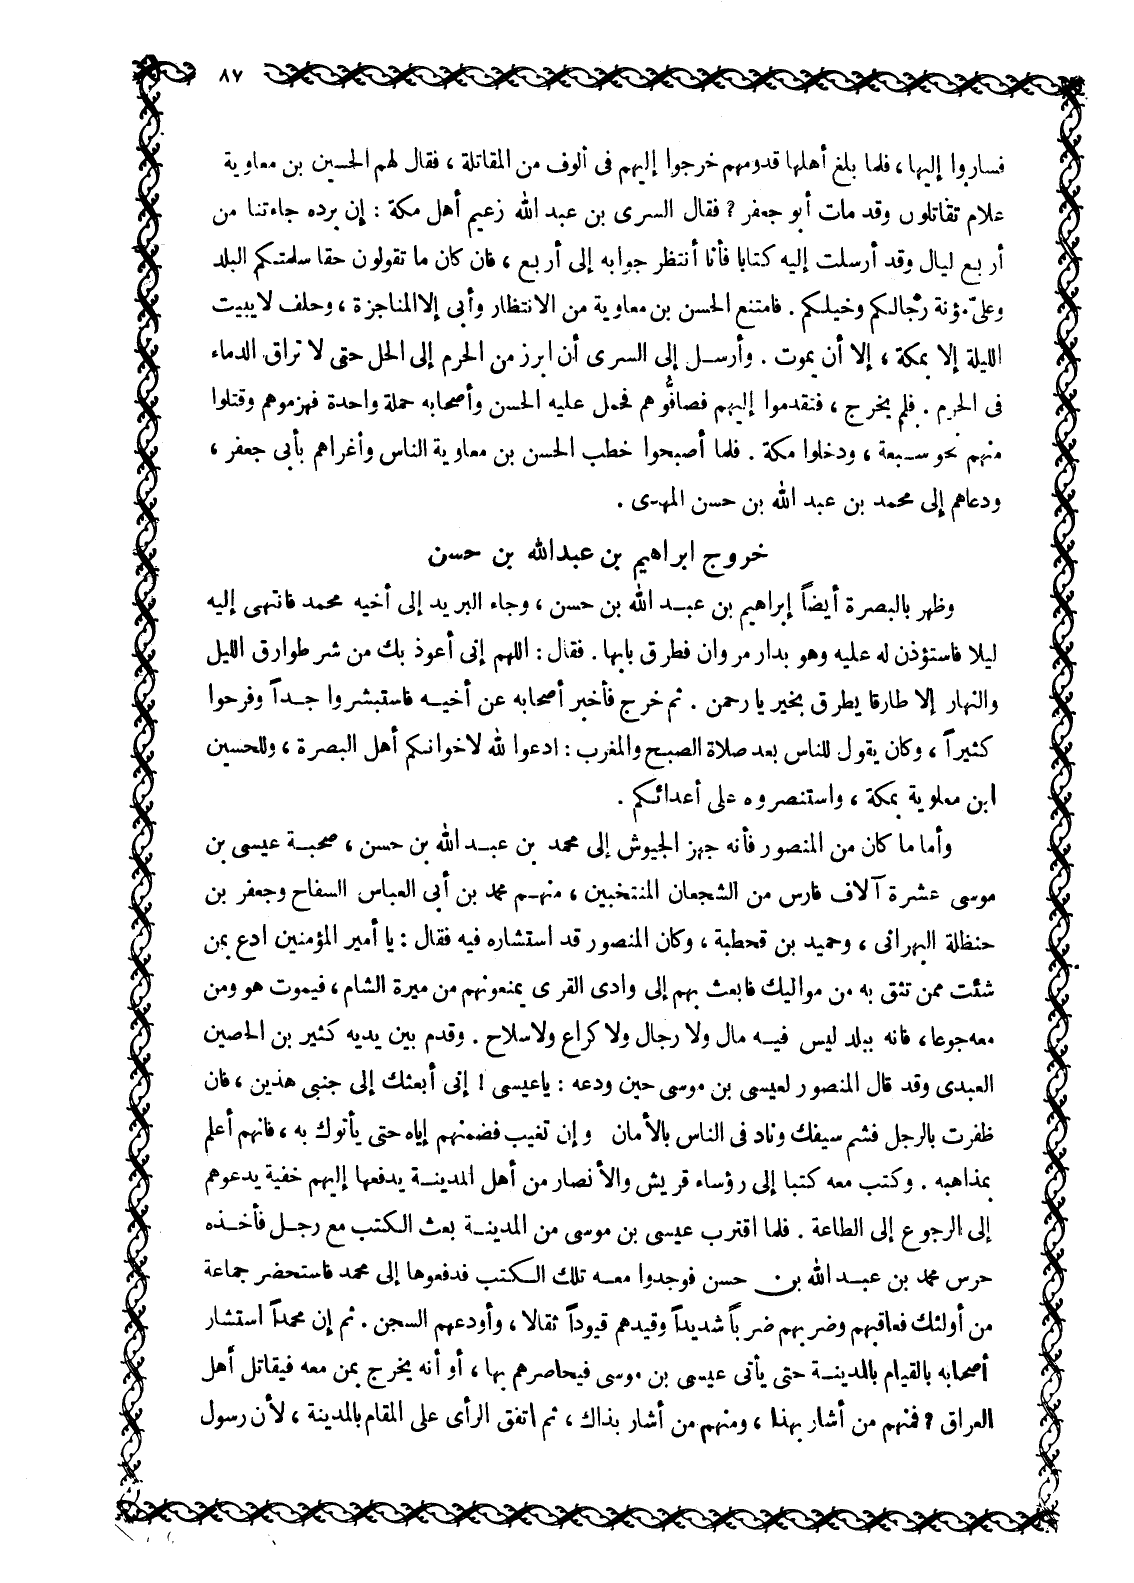 ٨٧
فساروا إليها، فلما بلغ أهلها قدومهم خرجوا إليهم فى ألوف من المقاتلة، فقال لهم الحسين بن معاوية
علام تقاتلون وقد مات أبو جعفر ? فقال السرى بن عبد الله زعيم أهل مكة : إن برده جاءتنا من
أربع ليال وقد أرسلت إليه كتابا فأنا أنتظر جوابه إلى أربع، فان كان ما تقولون حقا سلمتكم البلد
وعلىّ مؤنة رجالكم وخيلكم . فامتنع الحسن بن معاوية من الانتظار وأبى إلا المناجزة، وحلف لا يبيت
الليلة إلا بمكة، إلا أن يموت . وأرسل إلى السرى أن ابرز من الحرم إلى الحل حتى لا تراق الدماء
فى الحرم . فلم يخرج، فتقدموا إليهم فصافُّوهم فحمل عليه الحسن وأصحابه حملة واحدة فهزموهم وقتلوا
منهم نحو سبعة، ودخلوا مكة . فلما أصبحوا خطب الحسن بن معاوية الناس وأغراهم بأبى جعفر،
ودعاهم إلى محمد بن عبد الله بن حسن المهدى .
خروج ابراهيم بن عبدالله بن حسن
وظهر بالبصرة أيضاً إبراهيم بن عبد الله بن حسن، وجاء البريد إلى أخيه محمد فانتهى إليه
ليلا فاستؤذن له عليه وهو بدار مروان فطرق بابها . فقال : اللهم إنى أعوذ بك من شر طوارق الليل
والنهار إلا طارقا يطرق بخير يا رحمن . ثم خرج فأخبر أصحابه عن أخيه فاستبشروا جداً وفرحوا
كثيراً، وكان يقول للناس بعد صلاة الصبح والمغرب : ادعوا لله لاخوانكم أهل البصرة، وللحسين
ابن معاوية بمكة، واستنصروه على أعدائكم .
وأما ما كان من المنصور فأنه جهز الجيوش إلى محمد بن عبد الله بن حسن، صحبة عيسى بن
موسى عشرة آلاف فارس من الشجعان المنتخبين، منهم محمد بن أبى العباس السفاح وجعفر بن
حنظلة البهرانى، وحميد بن قحطبة، وكان المنصور قد استشاره فيه فقال : يا أمير المؤمنين ادع بمن
شئت ممن تثق به من مواليك فابعث بهم إلى وادى القرى يمنعونهم من ميرة الشام، فيموت هو ومن
معه جوعا، فانه ببلد ليس فيه مال ولا رجال ولا كراع ولا سلاح . وقدم بين يديه كثير بن الحصين
العبدى وقد قال المنصور لعيسى بن موسى حين ودعه : ياعيسى ! إنى أبعثك إلى جنبى هذين، فان
ظفرت بالرجل فشم سيفك وناد فى الناس بالأمان وإن تغيب فضمنهم إياه حتى يأتوك به، فانهم أعلم
بمذاهبه . وكتب معه كتبا إلى رؤساء قريش والأنصار من أهل المدينة يدفعها إليهم خفية يدعوهم
إلى الرجوع إلى الطاعة . فلما اقترب عيسى بن موسى من المدينة بعث الكتب مع رجل فأخذه
حرس محمد بن عبد الله بن حسن فوجدوا معه تلك الكتب فدفعوها إلى محمد فاستحضر جماعة
من أولئك فعاقبهم وضربهم ضرباً شديداً وقيدهم قيوداً ثقالا، وأودعهم السجن . ثم إن محمداً استشار
أصحابه بالقيام بالمدينة حتى يأتى عيسى بن موسى فيحاصرهم بها، أو أنه يخرج بمن معه فيقاتل أهل
العراق ? فمنهم من أشار بهذا، ومنهم من أشار بذاك، ثم اتفق الرأى على المقام بالمدينة، لأن رسول